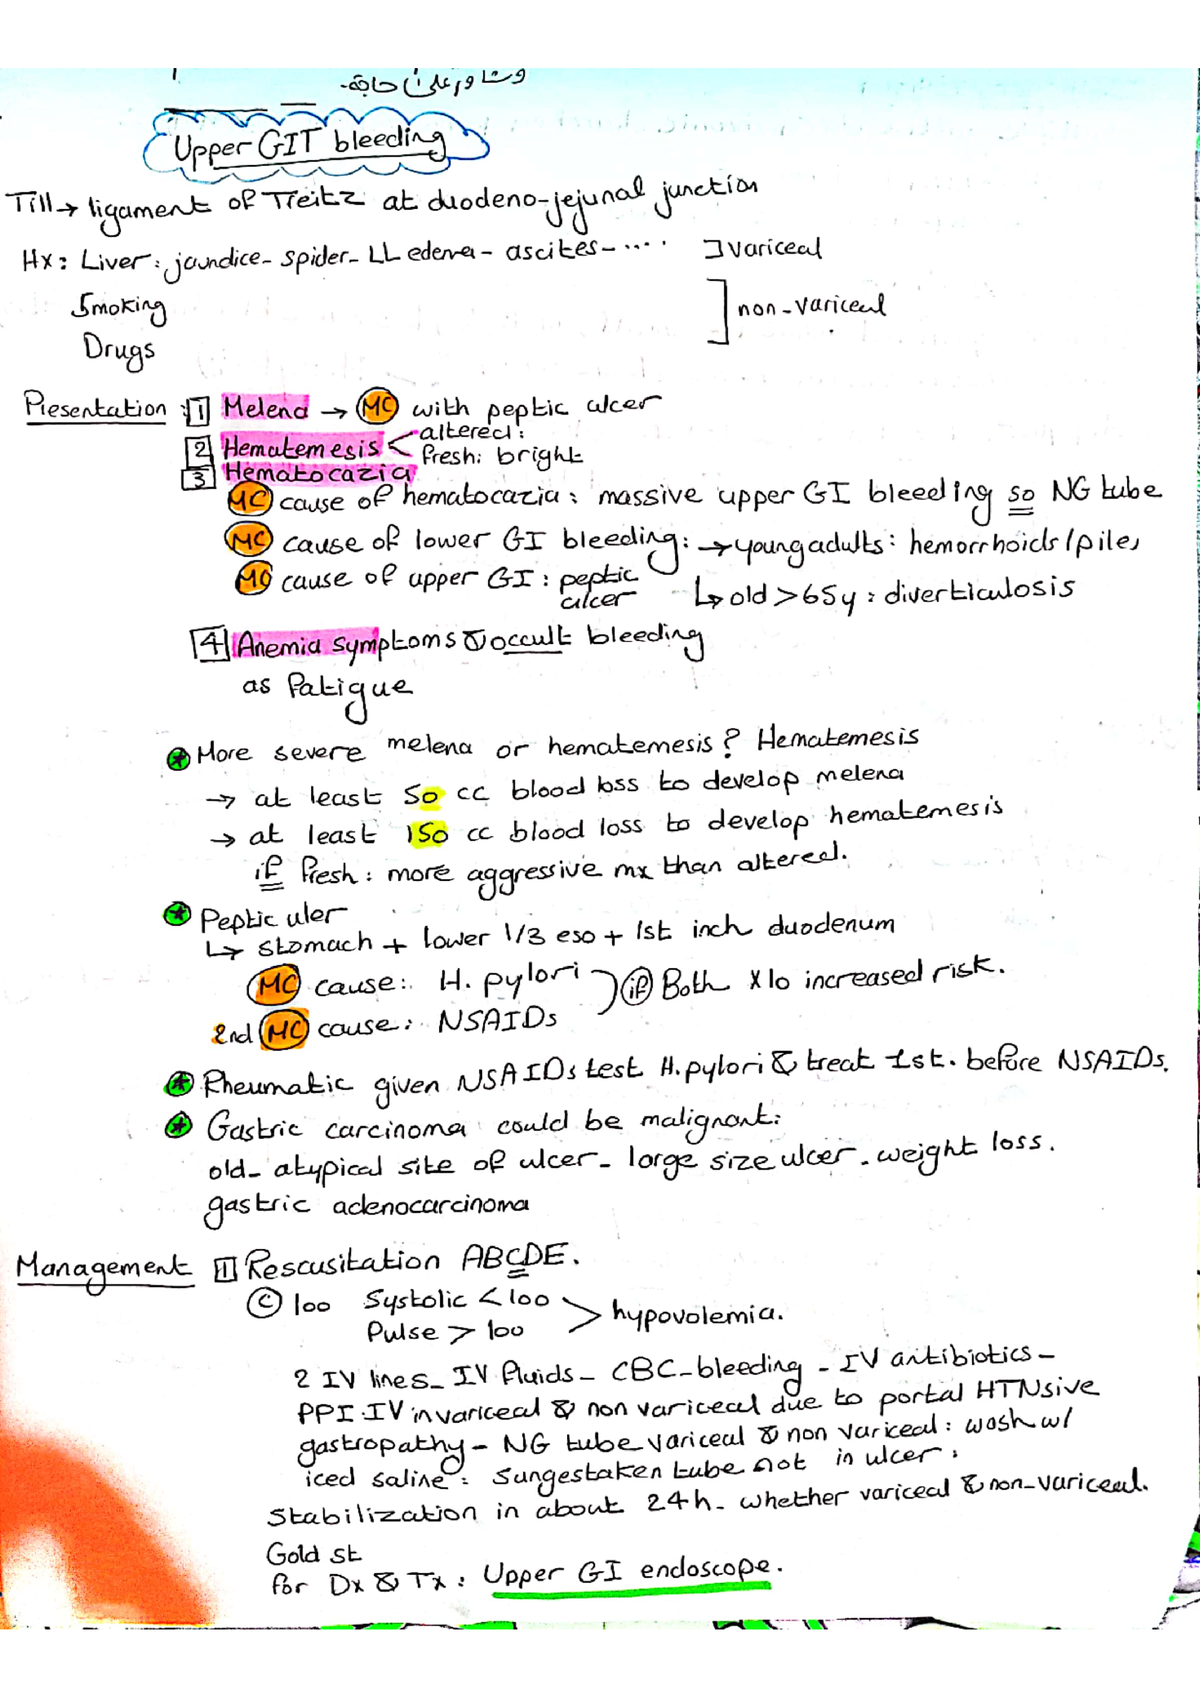 وشاور على حاجة.
Upper GIT bleeding
Till → ligament of Treitz at duodeno-jejunal junction
Hx: Liver: jaundice - spider - LL edema - ascites - .... ] variceal
Smoking
Drugs
] non-variceal
Presentation: 1 Melena → MC with peptic ulcer
2 Hematemesis < altered:
fresh: bright
3 Hematocazia
MC cause of hematocazia: massive upper GI bleeding so NG tube
MC cause of lower GI bleeding: → young adults: hemorrhoids/piles
MC cause of upper GI: peptic ulcer
↳ old > 65y: diverticulosis
4 Anemia symptoms & occult bleeding
as fatigue
More severe melena or hematemesis? Hematemesis
→ at least 50 cc blood loss to develop melena
→ at least 150 cc blood loss to develop hematemesis
if fresh: more aggressive mx than altered.
Peptic uler
↳ stomach + lower 1/3 eso + 1st inch duodenum
MC cause: H. pylori
2nd MC cause: NSAIDs
if Both x10 increased risk.
Rheumatic given NSAIDs test H.pylori & treat 1st. before NSAIDs.
Gastric carcinoma could be malignant:
old - atypical site of ulcer - large size ulcer - weight loss.
gastric adenocarcinoma
Management 1 Rescusitation ABCDE.
C 100 Systolic < 100
Pulse > 100
> hypovolemia.
2 IV lines - IV fluids - CBC - bleeding - IV antibiotics -
PPI IV in variceal & non variceal due to portal HTNsive
gastropathy - NG tube variceal & non variceal: wash w/
iced saline: Sungestaken tube not in ulcer.
Stabilization in about 24h - whether variceal & non-variceal.
Gold st
for Dx & Tx: Upper GI endoscope.